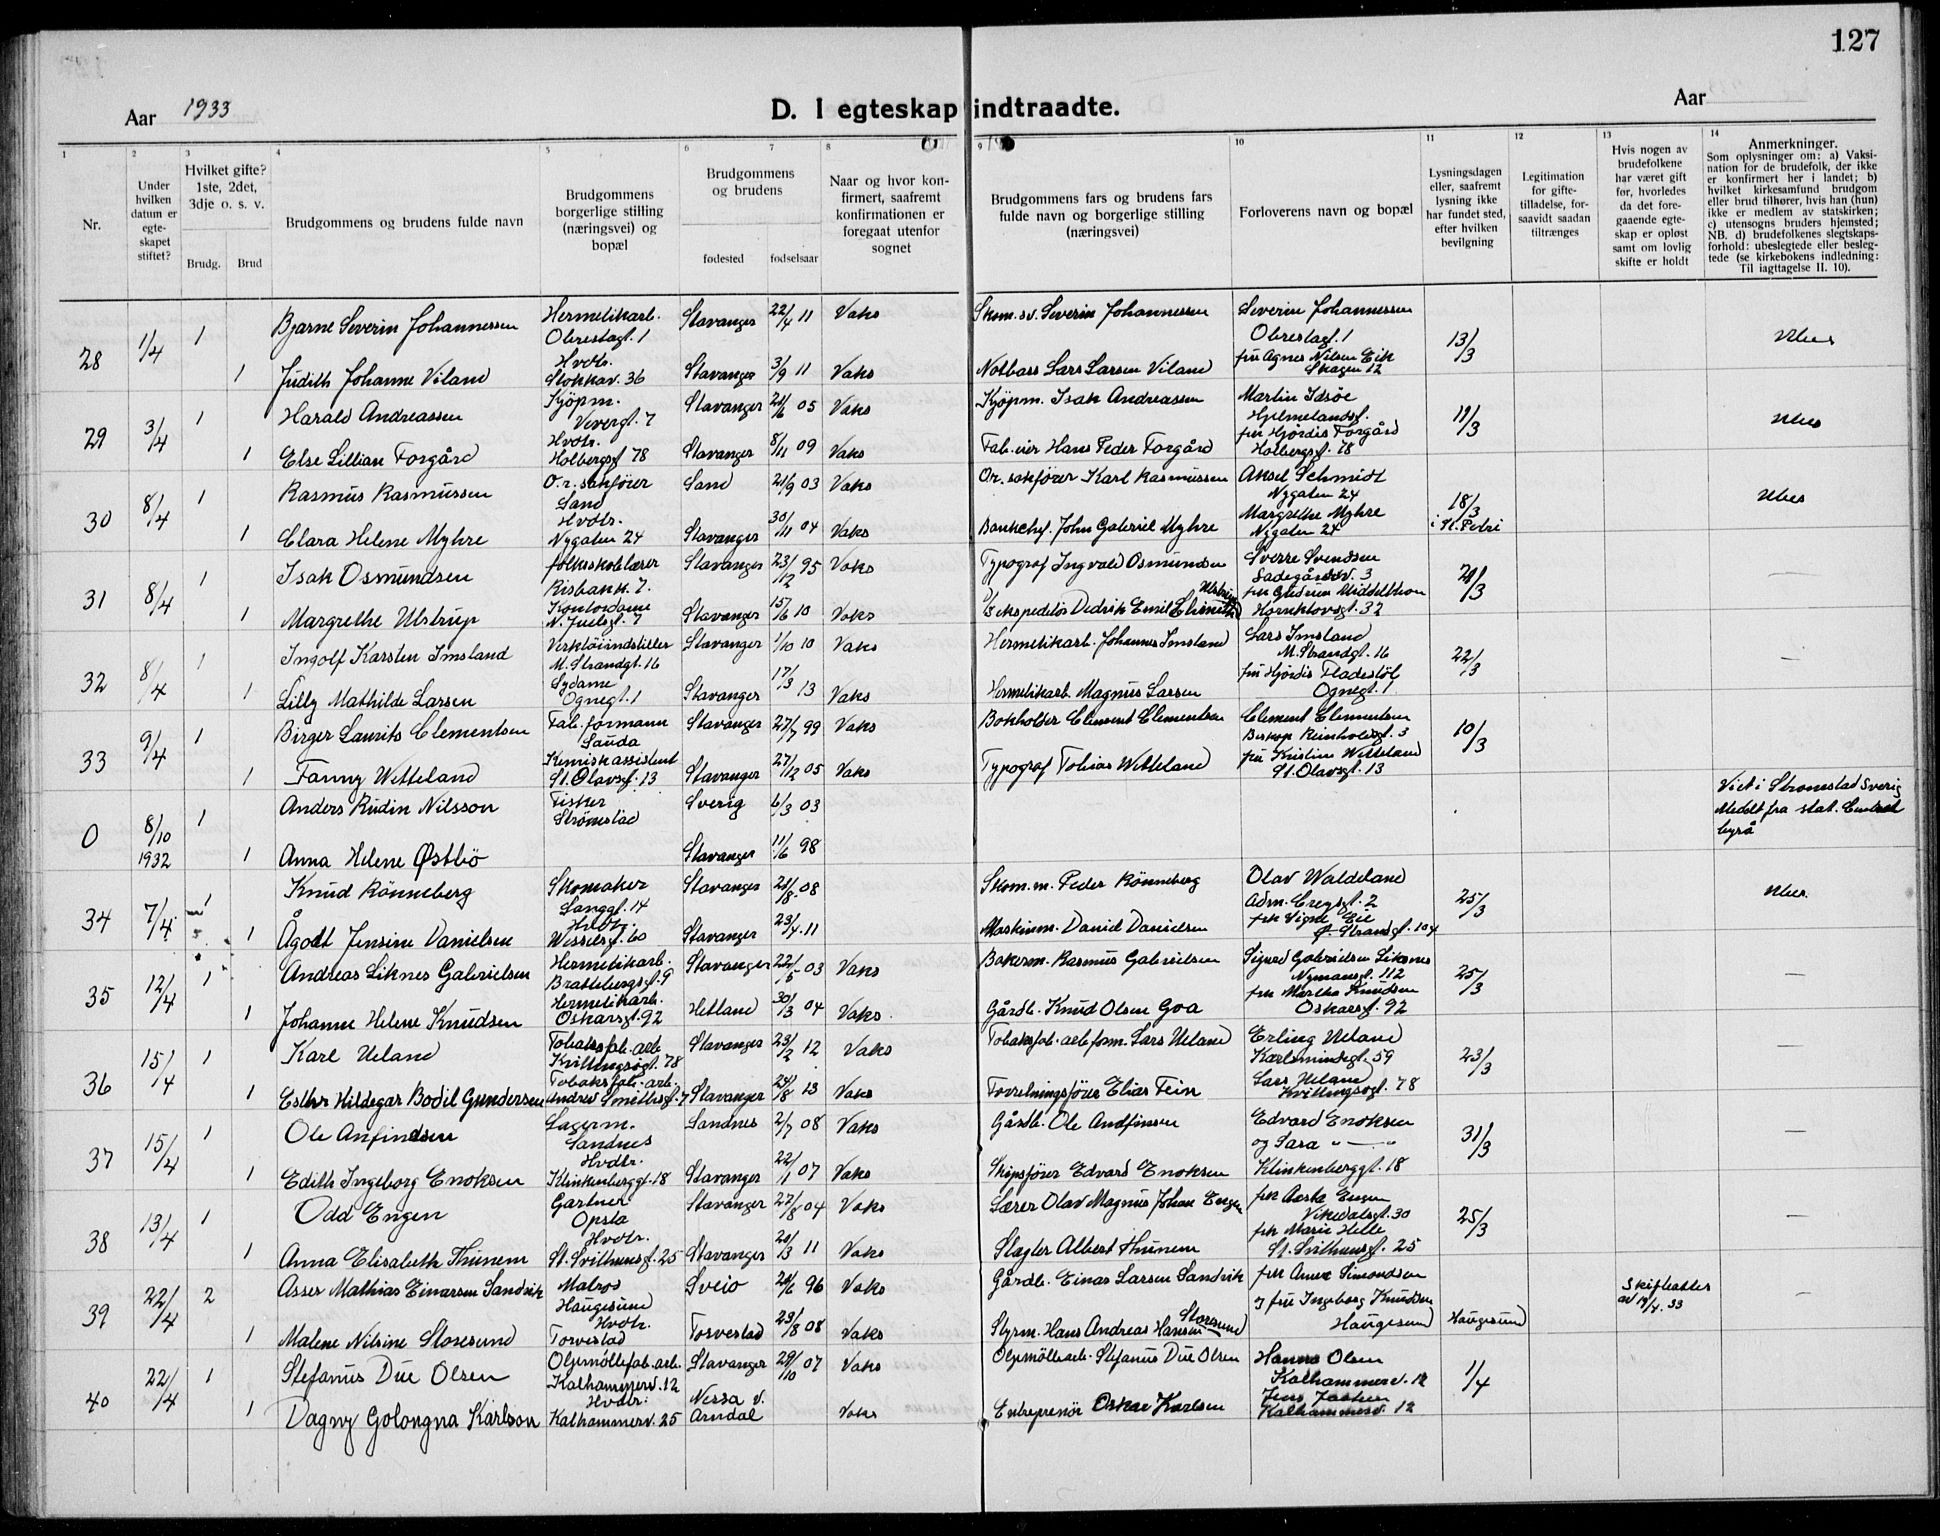 127
Aar 1933
D. I egteskap indtraadte.
Aar
1 2 3 4 5 6 7 8 9 10 11 12 13 14
Nr.
Under hvilken datum er egte-skapet stiftet?
Hvilket gifte? 1ste, 2det, 3dje o. s. v.
Brudg. Brud
Brudgommens og brudens fulde navn
Brudgommens borgerlige stilling (næringsvei) og bopæl
Brudgommens og brudens
fødested fødselsaar
Naar og hvor kon-firmert, saafremt konfirmationen er foregaat utenfor sognet
Brudgommens fars og brudens fars fulde navn og borgerlige stilling (næringsvei)
Forloverens navn og bopæl
Lysningsdagen eller, saafremt lysning ikke har fundet sted, efter hvilken bevilgning
Legitimation for gifte-tilladelse, for-saavidt saadan tiltrænges
Hvis nogen av brudefolkene har været gift før, hvorledes da det fore-gaaende egte-skap er opløst samt om lovlig skifte er holdt
Anmerkninger.
Som oplysninger om: a) Vaksi-nation for de brudefolk, der ikke er konfirmert her i landet; b) hvilket kirkesamfund brudgom eller brud tilhører, hvis han (hun) ikke er medlem av statskirken; c) utensogns bruders hjemsted; NB. d) brudefolkenes slegtskaps-forhold: ubeslegtede eller besleg-tede (se kirkebokens indledning: Til iagttagelse II. 10).
28 1/4 1 Bjarne Severin Johannessen Hermetikarb. Obrestagt. 1 Stavanger 22/4 11 Vaks Skom.sv. Severin Johannessen Severin Johannessen Obrestagt. 1 13/3 Ubes
1 Judith Johanne Viland Hvdtr. Stokkav. 36 Stavanger 3/9 11 Vaks Notbas Lars Larsen Viland fru Agnes Nilsen Eik Skagen 12
29 3/4 1 Harald Andreassen Kjöpm. Ververgt. 7 Stavanger 21/6 05 Vaks Kjöpm. Isak Andreassen Martin Idsöe Hjelmelandsg. 19/3 Ubes
1 Else Lillian Torgård Hvdtr. Holbergsg. 78 Stavanger 8/11 09 Vaks Fab.eier Hans Peder Torgård fru Hjördis Torgård Holbergsg. 78
30 8/4 1 Rasmus Rasmussen O.r. sakförer Sand Sand 21/9 03 Vaks Or. sakförer Karl Rasmussen Aksel Schmidt Nygaten 24 18/3 i St. Petri Ubes
1 Clara Helene Myhre Hvdtr. Nygaten 24 Stavanger 30/11 04 Vaks Bankchef. John Gabriel Myhre Margrethe Myhre Nygaten 24
31 8/4 1 Isak Osmundsen folkeskolelærer Risbakk. 7. Stavanger 23/12 95 Vaks Typograf Ingvald Osmundsen Sverre Svendsen Ladegårdsv. 3 21/3 —
1 Margrethe Ulstrup Kontordame N. Juelsgt. 7 Stavanger 15/6 10 Vaks Ekspeditör Didrik Emil Ulstrup fru Gudrun Middelthon Hornklovsgt. 32
32 8/4 1 Ingolf Karsten Imsland Verktöiindstiller M. Strandgt. 16 Stavanger 1/10 10 Vaks Hermetikarb. Johannes Imsland Lars Imsland M. Strandgt. 16 22/3 —
1 Lilly Mathilde Larsen Sydame Ognegt. 1 Stavanger 17/3 13 Vaks Hermetikarb. Magnus Larsen fru Hjördis Fladestöl Ognegt. 1
33 9/4 1 Birger Laurits Clementsen Fab. formann Sauda Stavanger 27/7 99 Vaks Bokholder Clement Clementsen Clement Clementsen Biskop Reinholdsgt. 3 10/3
1 Fanny Wetteland Kemisk assistent St. Olavsg. 13 Stavanger 27/12 05 Vaks Typograf Tobias Wetteland fru Kristine Wetteland St. Olavsgt. 13
0 8/10 1932 1 Anders Rudin Nilsson Fisker Strömstad Sverig 6/3 03 Viet i Strömstad Sverig Meddt fra stat. Centralbyrå
1 Anna Helene Østbö Stavanger 11/6 98
34 7/4 1 Knud Rönneberg Skomaker Langgt. 14 Stavanger 21/8 08 Skom.m. Peder Rönneberg Olav Waldeland Adm. Cregsgt. 2 25/3 Ubes.
1 Ågodt Jensine Danielsen Hvdtr. Wesselsg. 60 Stavanger 23/4 11 Maskinm. Daniel Danielsen frk Signe Eie Ø. Strandg. 104
35 12/4 1 Andreas Liknes Gabrielsen Hermetikarb. Brattebergsg. 9 Stavanger 22/5 03 Vaks Bakerm. Rasmus Gabrielsen Sigurd Gabrielsen Liknes Nymansgt. 112 25/3 —
1 Johanne Helene Knudsen Hermetikarb. Oskarsgt. 92 Hetland 30/3 04 Vaks. Gårdb. Knud Olsen Goa frk Martha Knudsen Oskarsg. 92
36 15/4 1 Karl Ueland Tobaksfab. arb. Kvitlingsögt. 78 Stavanger 23/2 12 Vaks Tobaksfab. arb.form. Lars Ueland Erling Ueland Karlsmindegt. 59 23/3
1 Esther Hildegar Bodil Gundersen Tobaksfab. arb. Andrew Smithsg. 7 Stavanger 24/8 13 Vaks Forretningsförer Elias Fein Lars Ueland Kvitlingsögt. 78
37 15/4 1 Ole Anfindsen Lagerm. Sandnes Sandnes 2/7 08 Vaks Gårdb. Ole Andfinsen Edvard Enoksen og Sara " — " 31/3 —
1 Edith Ingeborg Enoksen Hvdtr. Klinkenberggt. 18 Stavanger 22/1 07 Vaks Skipsförer Edvard Enoksen Klinkenberggt. 18
38 13/4 1 Odd Engen Gartner Opsta Stavanger 27/8 04 Vaks Lærer Olav Magnus Johan Engen frk Aasta Engen Vikedalsgt. 30 25/3 —
1 Anna Elisabeth Thunem Hvdtr. St. Svithunsg. 25 Stavanger 20/3 11 Vaks Slagter Albert Thunem frk Marie Helle St. Svithunsg. 25
39 22/4 2 Asser Mathias Einarsen Sandvik Matros Haugesund Sveio 20/6 96 Vaks Gårdb. Einar Larsen Sandvik frk Anne Simondsen Haugesund Skifteattes av 19/4. 33 —
1 Malene Nilsine Storesund Hvdtr. Torvestad Torvestad 23/8 08 Vaks Styrm. Hans Andreas Hansen Storesund og fru Ingeborg Knudsen Haugesund
40 22/4 1 Stefanus Due Olsen Oljemöllefab. arb. Kalhammerv. 12 Stavanger 29/10 07 Vaks Oljemöllearb. Stefanus Due Olsen Hanna Olsen Kalhammerv. 12 1/4
1 Dagny Golongna Karlson Hvdtr. Kalhammerv. 25 Nessa v. Arndal Vaks Entreprenör Oskar Karlsen Kalhammerv. 12